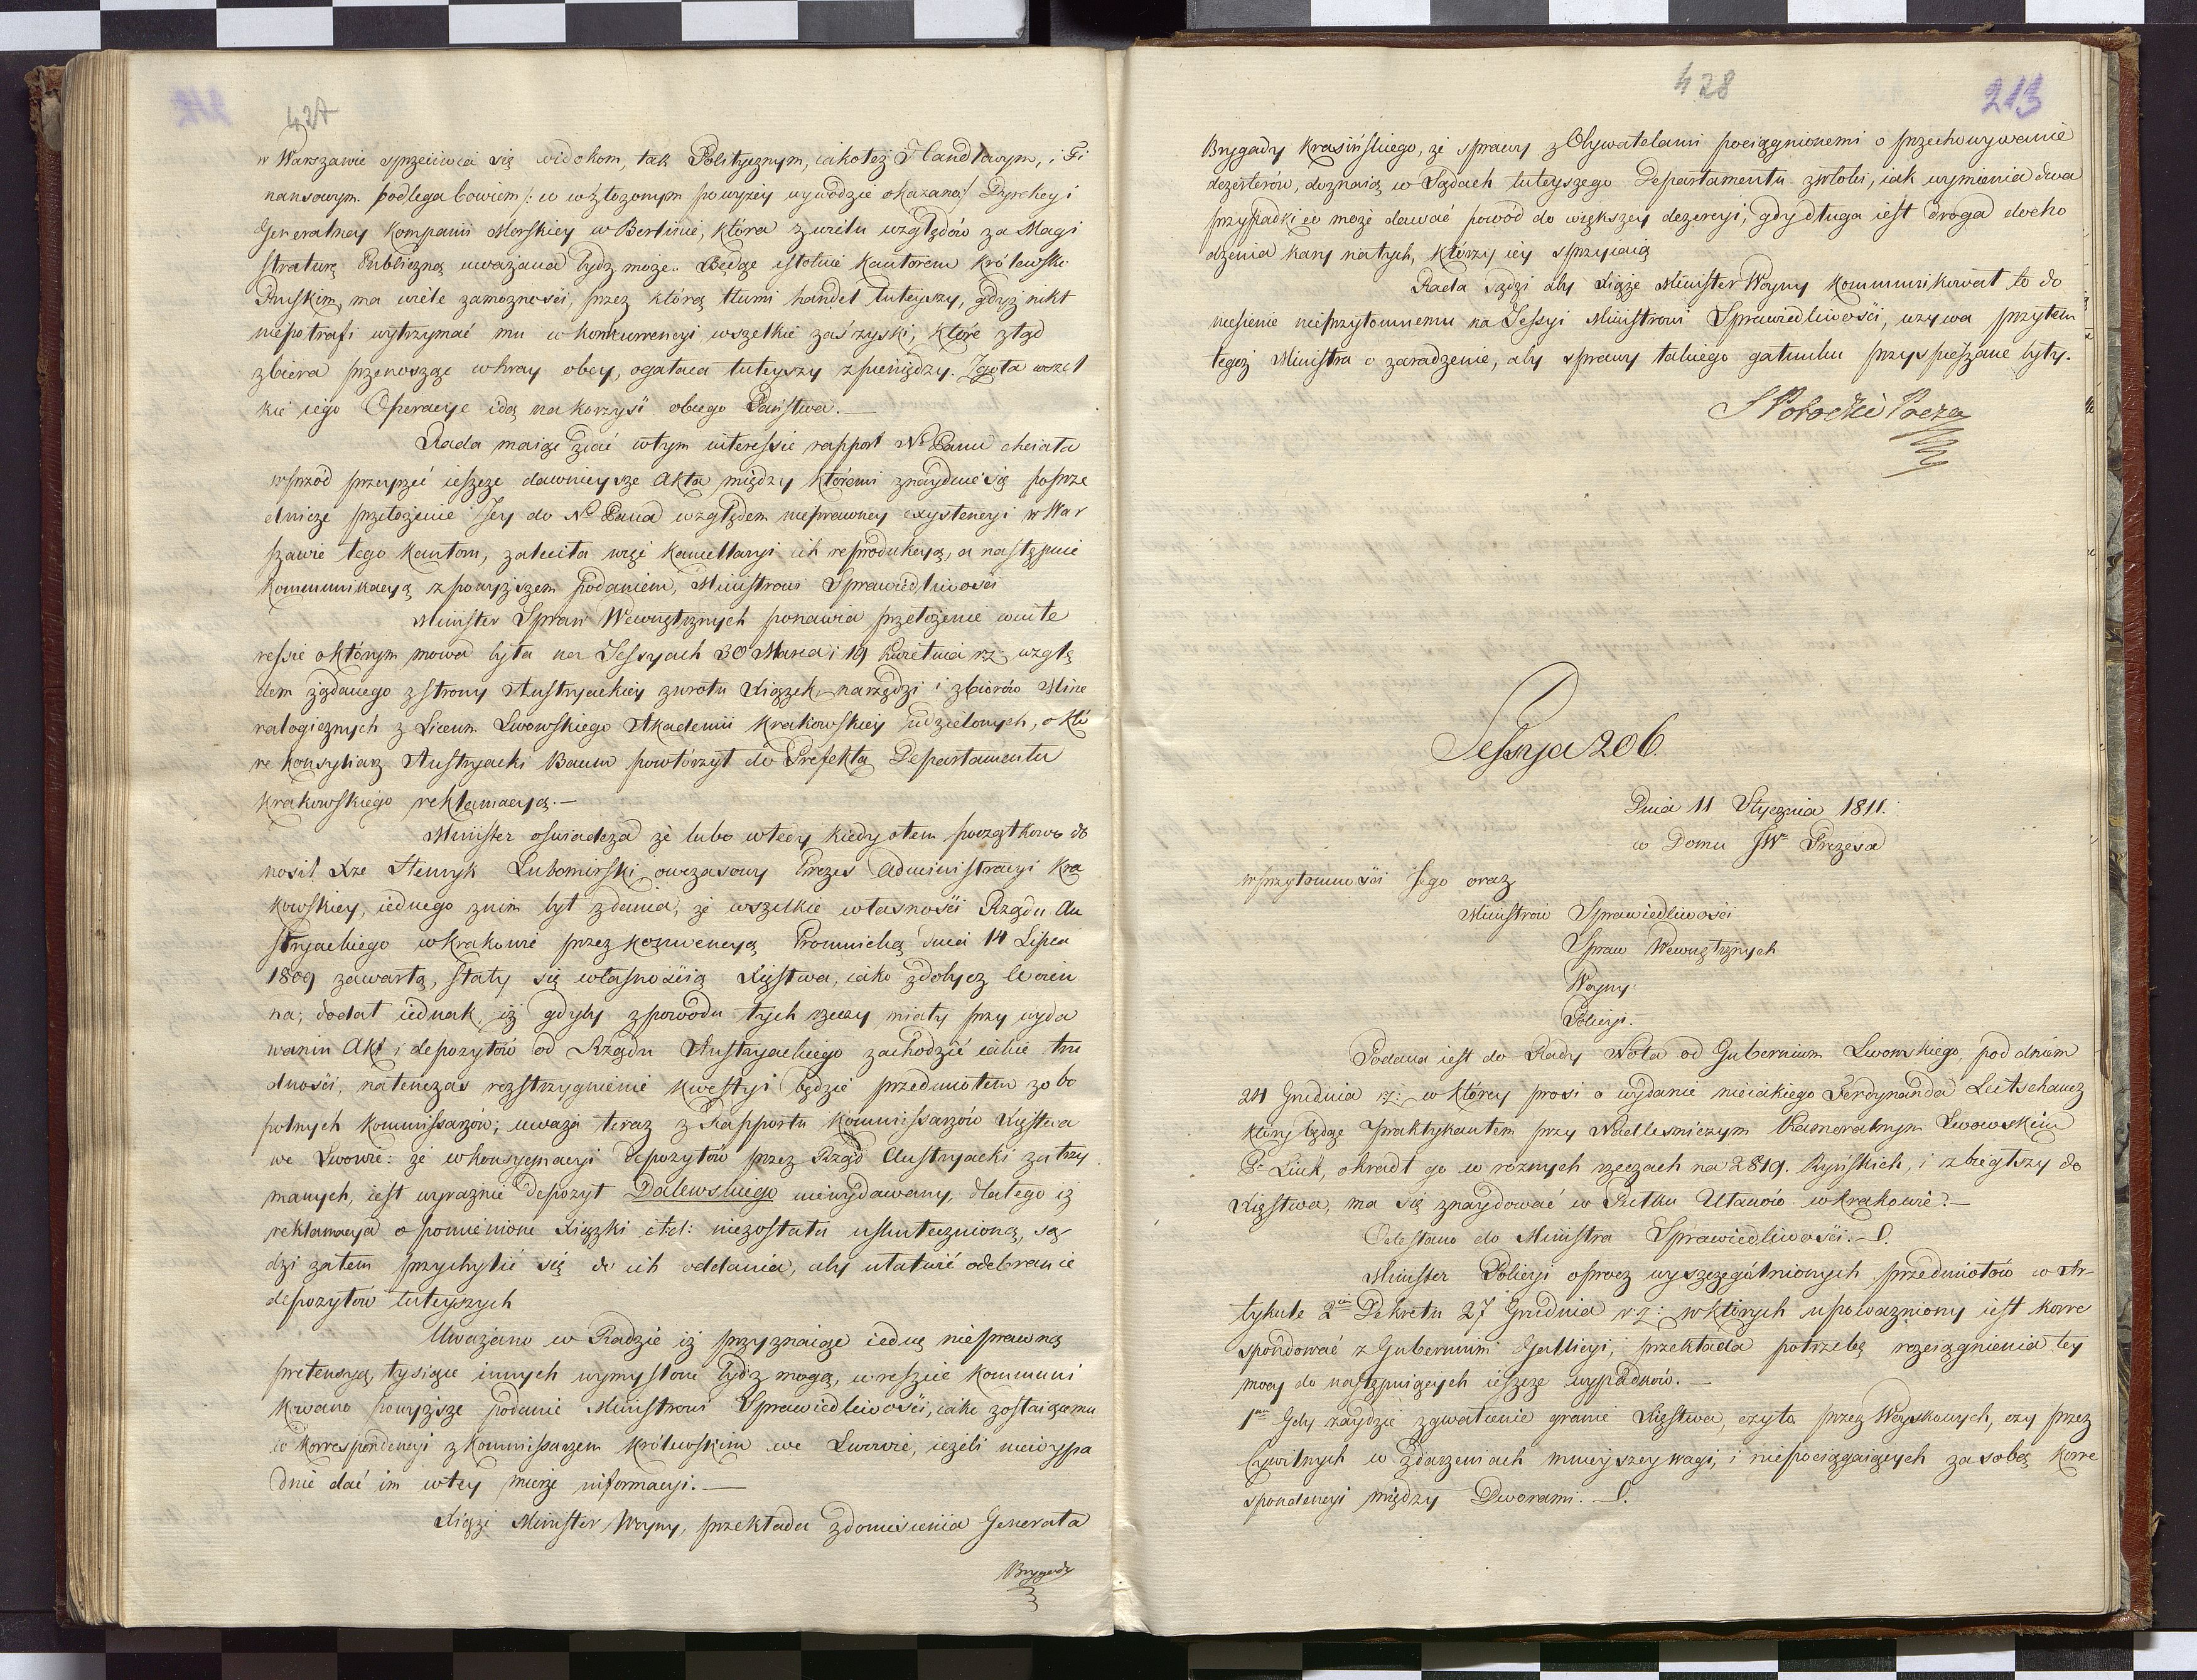 427
w Warszawie sprzeciwia się widokom, tak Politycznym, iakoteż Handlowym, i Fi
nansowym. podlega bowiem /: w wyłożonym powyżey wywodzie okazana:/ Dyrekcyi
Generalney Kompanii Morskiey w Berlinie, która z wielu względów za Magi
straturę Publiczną uważana bydz może. Będąc istotnie Kantorem Królewsko
Pruskim, ma wiele zamożności, przez którą tłumi handel tuteyszy, gdyż nikt
niepotrafi wytrzymać mu w konkurrencyi, wszelkie zaś zyski, które ztąd
zbiera przenosząc w kray obcy, ogałaca tuteyszy z pieniędzy. Zgoła wszel
kie iego Operacye idą na korzyść obcego Państwa.—
Rada maiąc zdać w tym interessie rapport N° Panu chciała
wprzód przeyrzeć ieszcze dawnieysze Akta między któremi znayduie się poprze
dnicze przełożenie Jey do N° Pana względem nieprawney exystencyi w War
szawie tego Kantoru, zaleciła więc Kancellaryi ich reprodukcyą, a następnie
Kommunikacyą z powyższem podaniem, Ministrowi Sprawiedliwości
Minister Spraw Wewnętrznych ponawia przełożenie w inte
ressie o którym mowa była na Sessyach 30 Marca i 19 Kwietnia r.z: wzglę
dem żądanego z strony Austryackiey zwrotu Xiążek, narzędzi i zbiorów Mine
ralogicznych z Liceum Lwowskiego Akademii Krakowskiey udzielonych, o któ
re Konsyliarz Austryacki Baum powtórzył do Prefekta Departamentu
Krakowskiego reklamacyą.—
Minister oświadcza że lubo wtedy kiedy otem początkowo do
nosił Xże Henryk Lubomirski owczasowy Prezes Administracyi Kra
kowskiey, iednego znim był zdania, że wszelkie własności Rządu Au
stryackiego w Krakowie przez konwencyą Promnicką dnia 14 Lipca
1809 zawartą, stały się własnością Xięstwa, iako zdobycz woien
na; dodał iednak, iż gdyby z powodu tych rzeczy miały przy wyda
waniu Akt i depozytów od Rządu Austryackiego zachodzić iakie tru
dności, natenczas rozstrzygnienie kwestyi będzie przedmiotem zobo
polnych Kommissarzów; uważa teraz z Rapportu Kommissarzów Xięstwa
we Lwowie: że w konsygnacyi depozytów przez Rząd Austryacki zatrzy
manych, iest wyraźnie depozyt Dalewskiego niewydawany, dlatego iż
reklamacya o pomienione Xiążki etc: niezostała uskutecznioną, są
dzi zatem przychylić się do ich oddania, aby ułatwić odebranie
depozytów tuteyszych
Uważano w Radzie iż przyznaiąc iedną nieprawną
pretensyą, tysiące innych wymyślone bydz mogą, wreszcie Kommuni
kowano powyższe podanie Ministrowi Sprawiedliwości, iako zostaiącemu
w Korrespondencyi z Kommissarzem Królewskim we Lwowie, ieżeli niewypa
dnie dać im w tey mierze informacyi.—
Xiąże Minister Woyny, przekłada z doniesienia Generała
Brygady
428
213
Brygady Krasińskiego, że sprawy z Obywatelami pociągnionemi o przechowywanie
dezerterów, doznaią w Sądach tuteyszego Departamentu zwłoki, iak wymienia dwa
przypadki co może dawać powód do większey dezercyi, gdy długa iest droga docho
dzenia kary na tych, którzy iey sprzyiaią
Rada sądzi aby Xiąże Minister Woyny kommunikował to do
niesienie nieprzytomnemu na Sessyi Ministrowi Sprawiedliwości, wzywa przytem
tegoż Ministra o zaradzenie, aby sprawy takiego gatunku przyspieszane były.
S Potocki Preza
Sessya 206.
Dnia 11 Stycznia 1811.
w Domu JW° Prezesa
w przytomności Jego oraz
Ministrów Sprawiedliwości
Spraw Wewnętrznych
Woyny
Policyi.
Podana iest do Rady Nota od Gubernium Lwowskiego, pod dniem
24 Grudnia r.z: w którey prosi o wydanie nieiakiego Ferdynanda Leitschancz
który będąc Praktykantem przy Nadleśniczym Kameralnym Lwowskim
P. Liuk, okradł go w różnych rzeczach na 2819. Ryńskich, i zbiegłszy do
Xięstwa, ma się znaydować w Pułku Ułanów w Krakowie.—
Odesłano do Ministra Sprawiedliwości.
Minister Policyi oprócz wyszczególnionych przedmiotów w Ar-
tykule 2im Dekretu 27 Grudnia r.z: w których upoważniony iest korre
spondować z Gubernium Gallicyi, przekłada potrzebę rozciągnienia tey
mocy do następuiących ieszcze wypadków.—
1mo Gdy zaydzie zgwałcenie granic Xięstwa, czyto przez Woyskowych, czy przez
Cywilnych w zdarzeniach mnieyszey wagi, i niepociągaiących za sobą Korre
spondencyi między Dworami.